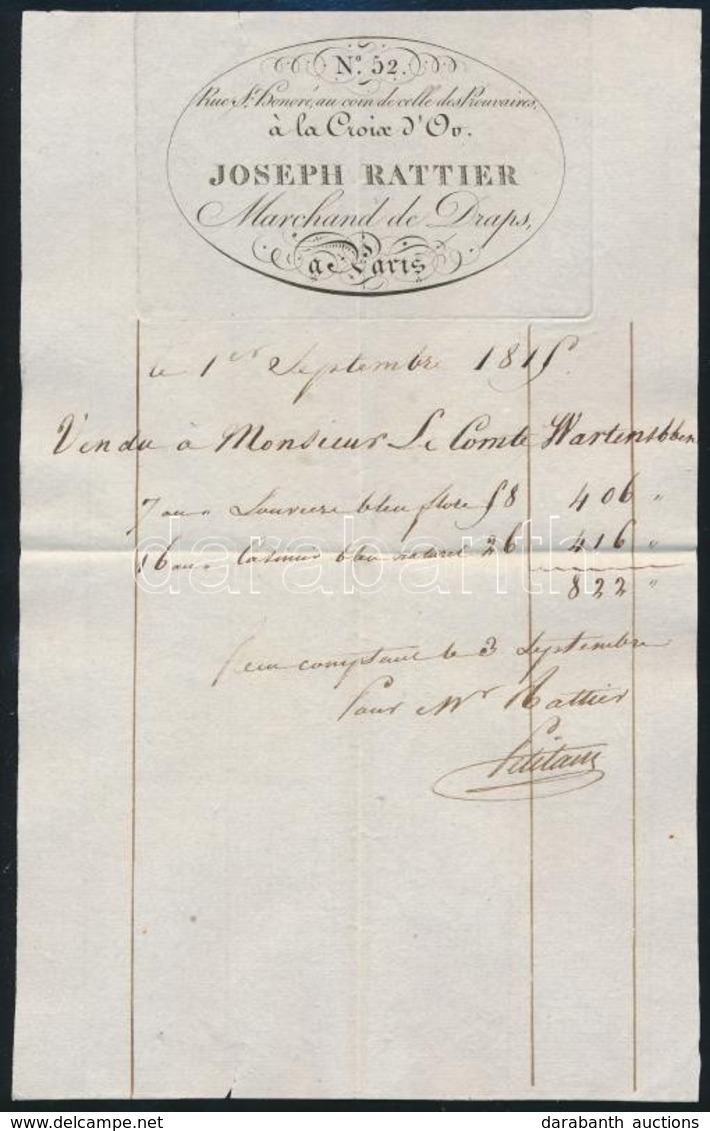 Nº. 52.
Rue St. Honoré, au coin de celle des Prouvaires,
à la Croix d'Or.
JOSEPH RATTIER
Marchand de Draps,
à Paris
le 1er Septembre 1815.
Vendu à Monsieur Le Comte Wartensbben
7 au Louviers bleu 58 406 "
16 au Casimir bleu 26 416 "
822 "
comptant le 3 Septembre
Pour Mr Rattier
darabanth
www.delcampe.net
darabanth auctions